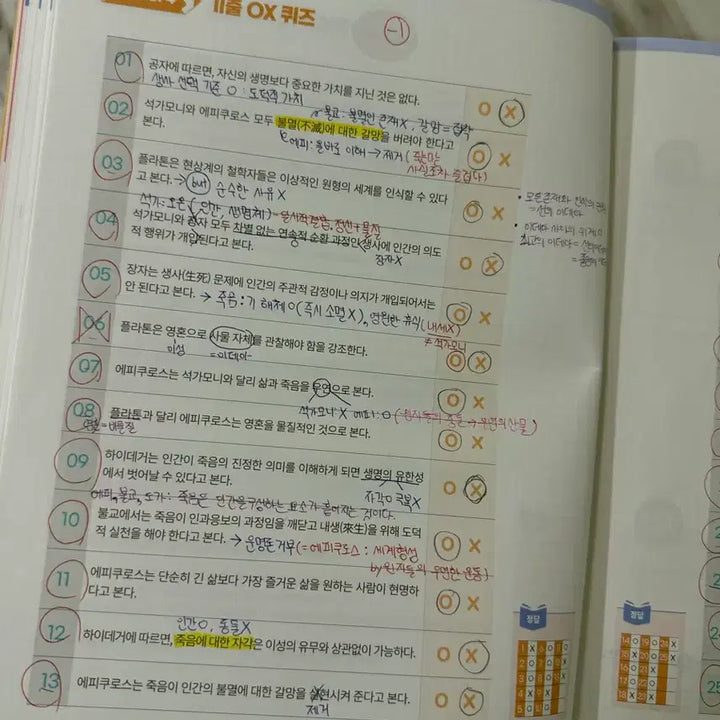 기출 OX 퀴즈
-1
01 공자에 따르면, 자신의 생명보다 중요한 가치를 지닌 것은 없다. O X
생사 선택 기준 O : 도덕적 가치
02 석가모니와 에피쿠로스 모두 불멸(不滅)에 대한 갈망을 버려야 한다고 본다. O X
불교: 불멸인 존재X, 갈망=집착
에피: 올바로 이해 → 제거
03 플라톤은 현상계의 철학자들은 이상적인 원형의 세계를 인식할 수 있다
고 본다. → but 순수한 사유 X O X
04 석가모니와 장자 모두 차별 없는 연속적 순환 과정인 생사에 인간의 의도
적 행위가 개입된다고 본다. O X
장자X
05 장자는 생사(生死) 문제에 인간의 주관적 감정이나 의지가 개입되어서는
안 된다고 본다. O X
→ 죽음: 기 해체 O (즉시 소멸X), 영원한 휴식 (내세X)
≠ 석가모니
06 플라톤은 영혼으로 사물 자체를 관찰해야 함을 강조한다. O X
이성 =이데아
07 에피쿠로스는 석가모니와 달리 삶과 죽음을 우연으로 본다. O X
석가모니 X 에피: O
08 플라톤과 달리 에피쿠로스는 영혼을 물질적인 것으로 본다. O X
09 하이데거는 인간이 죽음의 진정한 의미를 이해하게 되면 생명의 유한성
에서 벗어날 수 있다고 본다. O X
자각O 극복X
에피, 불교, 도가: 죽음은 인간을 구성하는 요소가 흩어지는 것이다.
10 불교에서는 죽음이 인과응보의 과정임을 깨닫고 내생(來生)을 위해 도덕
적 실천을 해야 한다고 본다. O X
→ 운명론 거부 (=에피쿠로스: 세계형성
by 원자들의 우연한 운동)
11 에피쿠로스는 단순히 긴 삶보다 가장 즐거운 삶을 원하는 사람이 현명하
다고 본다. O X
인간O, 동물X
12 하이데거에 따르면, 죽음에 대한 자각은 이성의 유무와 상관없이 가능하다. O X
13 에피쿠로스는 죽음이 인간의 불멸에 대한 갈망을 실현시켜 준다고 본다. O X
제거
정답
정답